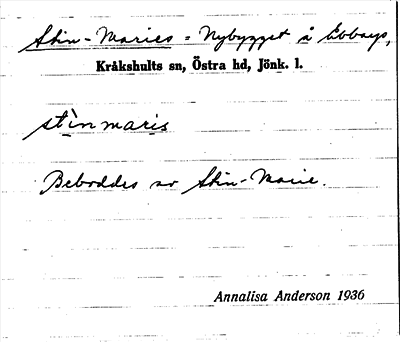 Stin-Maries = Nybygget å Ebbarp,
Kråkshults sn, Östra hd, Jönk. l.
sti̖nmaris
Beboddes av Stin-Marie.
Annalisa Anderson 1936